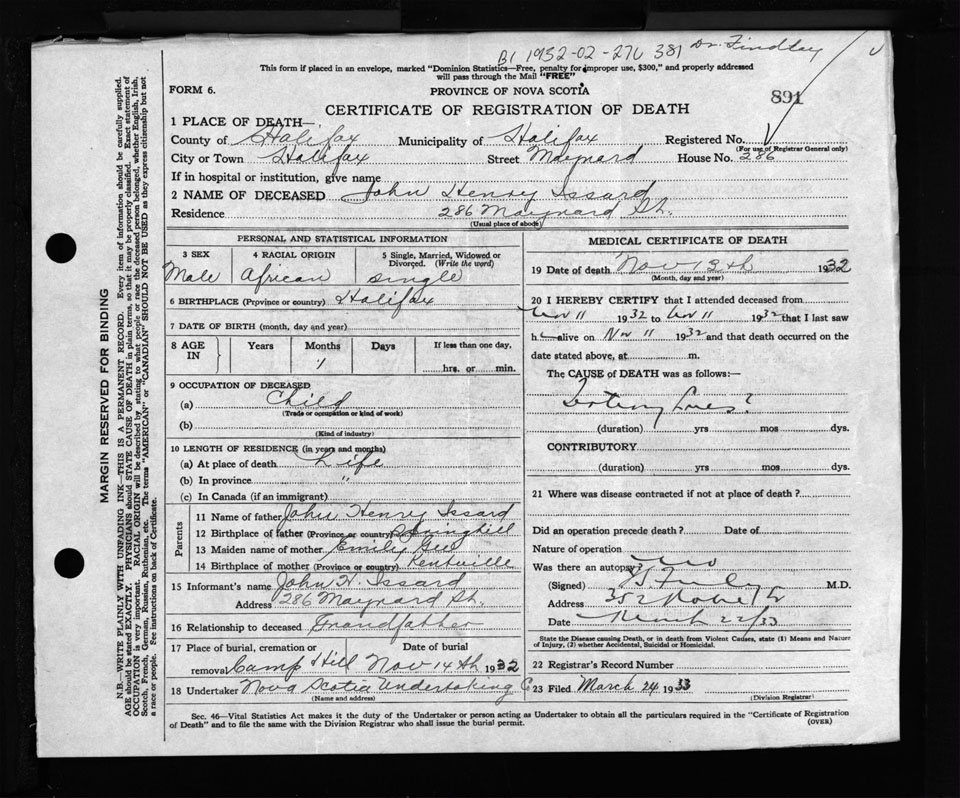 B1 1932-02-276 381 Dr. Findlay
This form if placed in an envelope, marked "Dominion Statistics—Free, penalty for improper use, $300," and properly addressed
will pass through the Mail "FREE"
FORM 6.
PROVINCE OF NOVA SCOTIA
891
CERTIFICATE OF REGISTRATION OF DEATH
1 PLACE OF DEATH—
County of Halifax Municipality of Halifax Registered No.
(For use of Registrar General only)
City or Town Halifax Street Maynard House No. 286
If in hospital or institution, give name
2 NAME OF DECEASED John Henry Issard
Residence 286 Maynard St.
(Usual place of abode)
PERSONAL AND STATISTICAL INFORMATION
3 SEX 4 RACIAL ORIGIN 5 Single, Married, Widowed or
Divorced. (Write the word)
Male African single
6 BIRTHPLACE (Province or country) Halifax
7 DATE OF BIRTH (month, day and year)
8 AGE IN Years Months Days If less than one day,
1 hrs. or min.
9 OCCUPATION OF DECEASED
(a) Child
(Trade or occupation or kind of work)
(b)
(Kind of industry)
10 LENGTH OF RESIDENCE (in years and months)
(a) At place of death Life
(b) In province "
(c) In Canada (if an immigrant)
Parents
11 Name of father John Henry Issard
12 Birthplace of father (Province or country) Springhill
13 Maiden name of mother Emily
14 Birthplace of mother (Province or country) Kentville
15 Informant's name John H. Issard
Address 286 Maynard St.
16 Relationship to deceased Grandfather
17 Place of burial, cremation or Date of burial
removal Camp Hill Nov 14th 1932
18 Undertaker Nova Scotia Undertaking C
(Name and address)
MEDICAL CERTIFICATE OF DEATH
19 Date of death Nov 13th 1932
(Month, day and year)
20 I HEREBY CERTIFY that I attended deceased from
Nov 11 1932 to Nov 11 1932 that I last saw
h alive on Nov 11 1932 and that death occurred on the
date stated above, at m.
The CAUSE of DEATH was as follows:—
(duration) yrs mos dys.
CONTRIBUTORY
(duration) yrs mos dys.
21 Where was disease contracted if not at place of death?
Did an operation precede death? Date of
Nature of operation
Was there an autopsy? no
(Signed) M.D.
Address
Date March 22/33
State the Disease causing Death, or in death from Violent Causes, state (1) Means and Nature
of Injury, (2) whether Accidental, Suicidal or Homicidal.
22 Registrar's Record Number
23 Filed March 24 1933
(Division Registrar)
Sec. 46—Vital Statistics Act makes it the duty of the Undertaker or person acting as Undertaker to obtain all the particulars required in the "Certificate of Registration
of Death" and to file the same with the Division Registrar who shall issue the burial permit. (OVER)
MARGIN RESERVED FOR BINDING
N.B.—WRITE PLAINLY WITH UNFADING INK—THIS IS A PERMANENT RECORD. Every item of information should be carefully supplied.
AGE should be stated EXACTLY. PHYSICIANS should STATE CAUSE OF DEATH in plain terms, so that it may be properly classified. Exact statement of
OCCUPATION is very important. RACIAL ORIGIN will be described by stating to what people or race the deceased person belonged, whether English, Irish,
Scotch, French, German, Russian, Ruthenian, etc. The terms "AMERICAN" or "CANADIAN" SHOULD NOT BE USED as they express citizenship but not
a race or people. See instructions on back of Certificate.